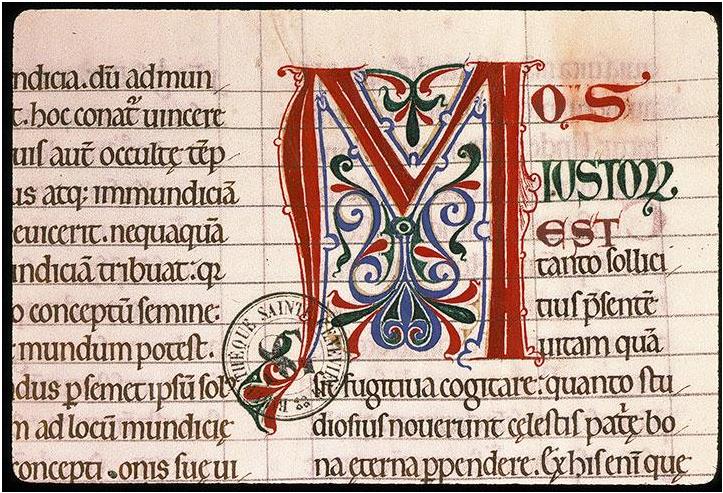 ndicia. dū admun
t. hoc conat᷑ uincere
uis aut̄ occultę tēp
us atq; immundiciā
euicerit. nequaquā
undiciā tribuat: qr
o conceptū semine:
mundum potest.
dus p̱semetipsū sol
m ad locū mundicię
concepti. onis suę ui
MOS
IUSTORꝜ
EST
tanto sollici
tius p̄sentē
uitam quā
sit fugitiua cogitare: quanto stu
diosius nouerunt cęlestis pat᷑ę bo
na ęterna p̱pendere. Ex his eni᷑ quę
BIBLIOTHEQUE SAINTE GENEVIEVE